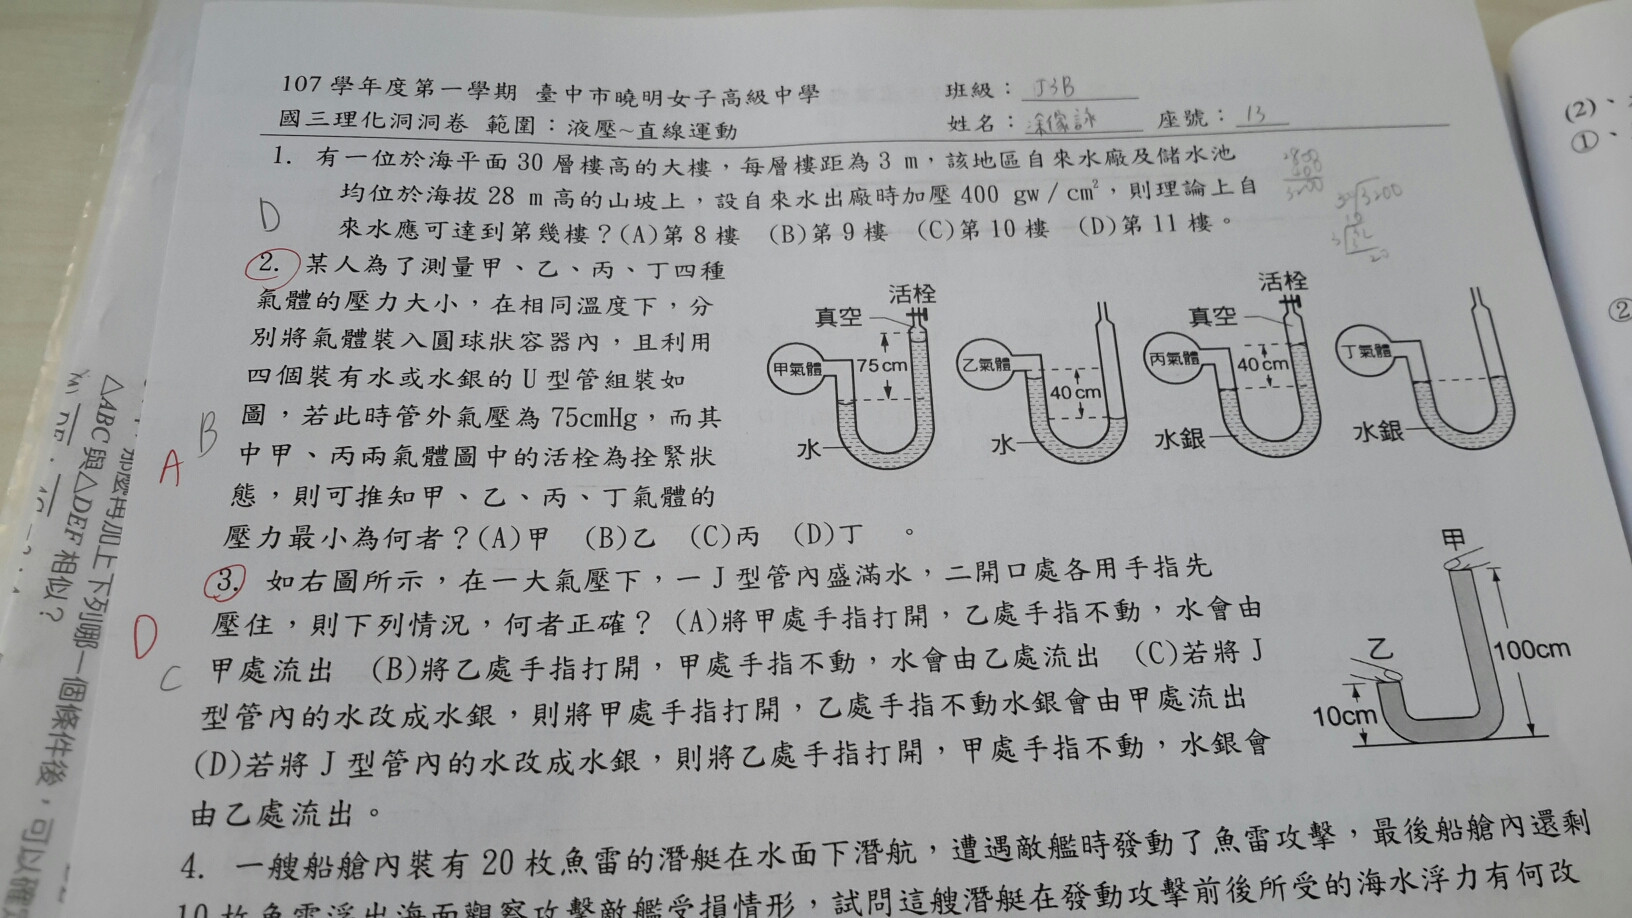 107 學年度第一學期 臺中市曉明女子高級中學 班級：J3B
國三理化洞洞卷 範圍：液壓~直線運動 姓名： 座號：13
1. 有一位於海平面 30 層樓高的大樓，每層樓距為 3 m，該地區自來水廠及儲水池
均位於海拔 28 m 高的山坡上，設自來水出廠時加壓 400 gw / cm²，則理論上自
D 來水應可達到第幾樓？(A)第 8 樓 (B)第 9 樓 (C)第 10 樓 (D)第 11 樓。
2. 某人為了測量甲、乙、丙、丁四種
氣體的壓力大小，在相同溫度下，分
別將氣體裝入圓球狀容器內，且利用
四個裝有水或水銀的 U 型管組裝如
圖，若此時管外氣壓為 75cmHg，而其
B
中甲、丙兩氣體圖中的活栓為拴緊狀
A
態，則可推知甲、乙、丙、丁氣體的
壓力最小為何者？(A)甲 (B)乙 (C)丙 (D)丁 。
活栓
真空
甲氣體
75cm
水
乙氣體
40cm
水
活栓
真空
丙氣體
40cm
水銀
丁氣體
水銀
3. 如右圖所示，在一大氣壓下，一 J 型管內盛滿水，二開口處各用手指先
壓住，則下列情況，何者正確？ (A)將甲處手指打開，乙處手指不動，水會由
D
甲處流出 (B)將乙處手指打開，甲處手指不動，水會由乙處流出 (C)若將 J
C
型管內的水改成水銀，則將甲處手指打開，乙處手指不動水銀會由甲處流出
(D)若將 J 型管內的水改成水銀，則將乙處手指打開，甲處手指不動，水銀會
由乙處流出。
甲
乙
100cm
10cm
4. 一艘船艙內裝有 20 枚魚雷的潛艇在水面下潛航，遭遇敵艦時發動了魚雷攻擊，最後船艙內還剩
10 枚魚雷浮出海面觀察攻擊敵艦受損情形，試問這艘潛艇在發動攻擊前後所受的海水浮力有何改
加上下列哪一個條件後，可以確
△ABC與△DEF相似？
(2)、
①、
②